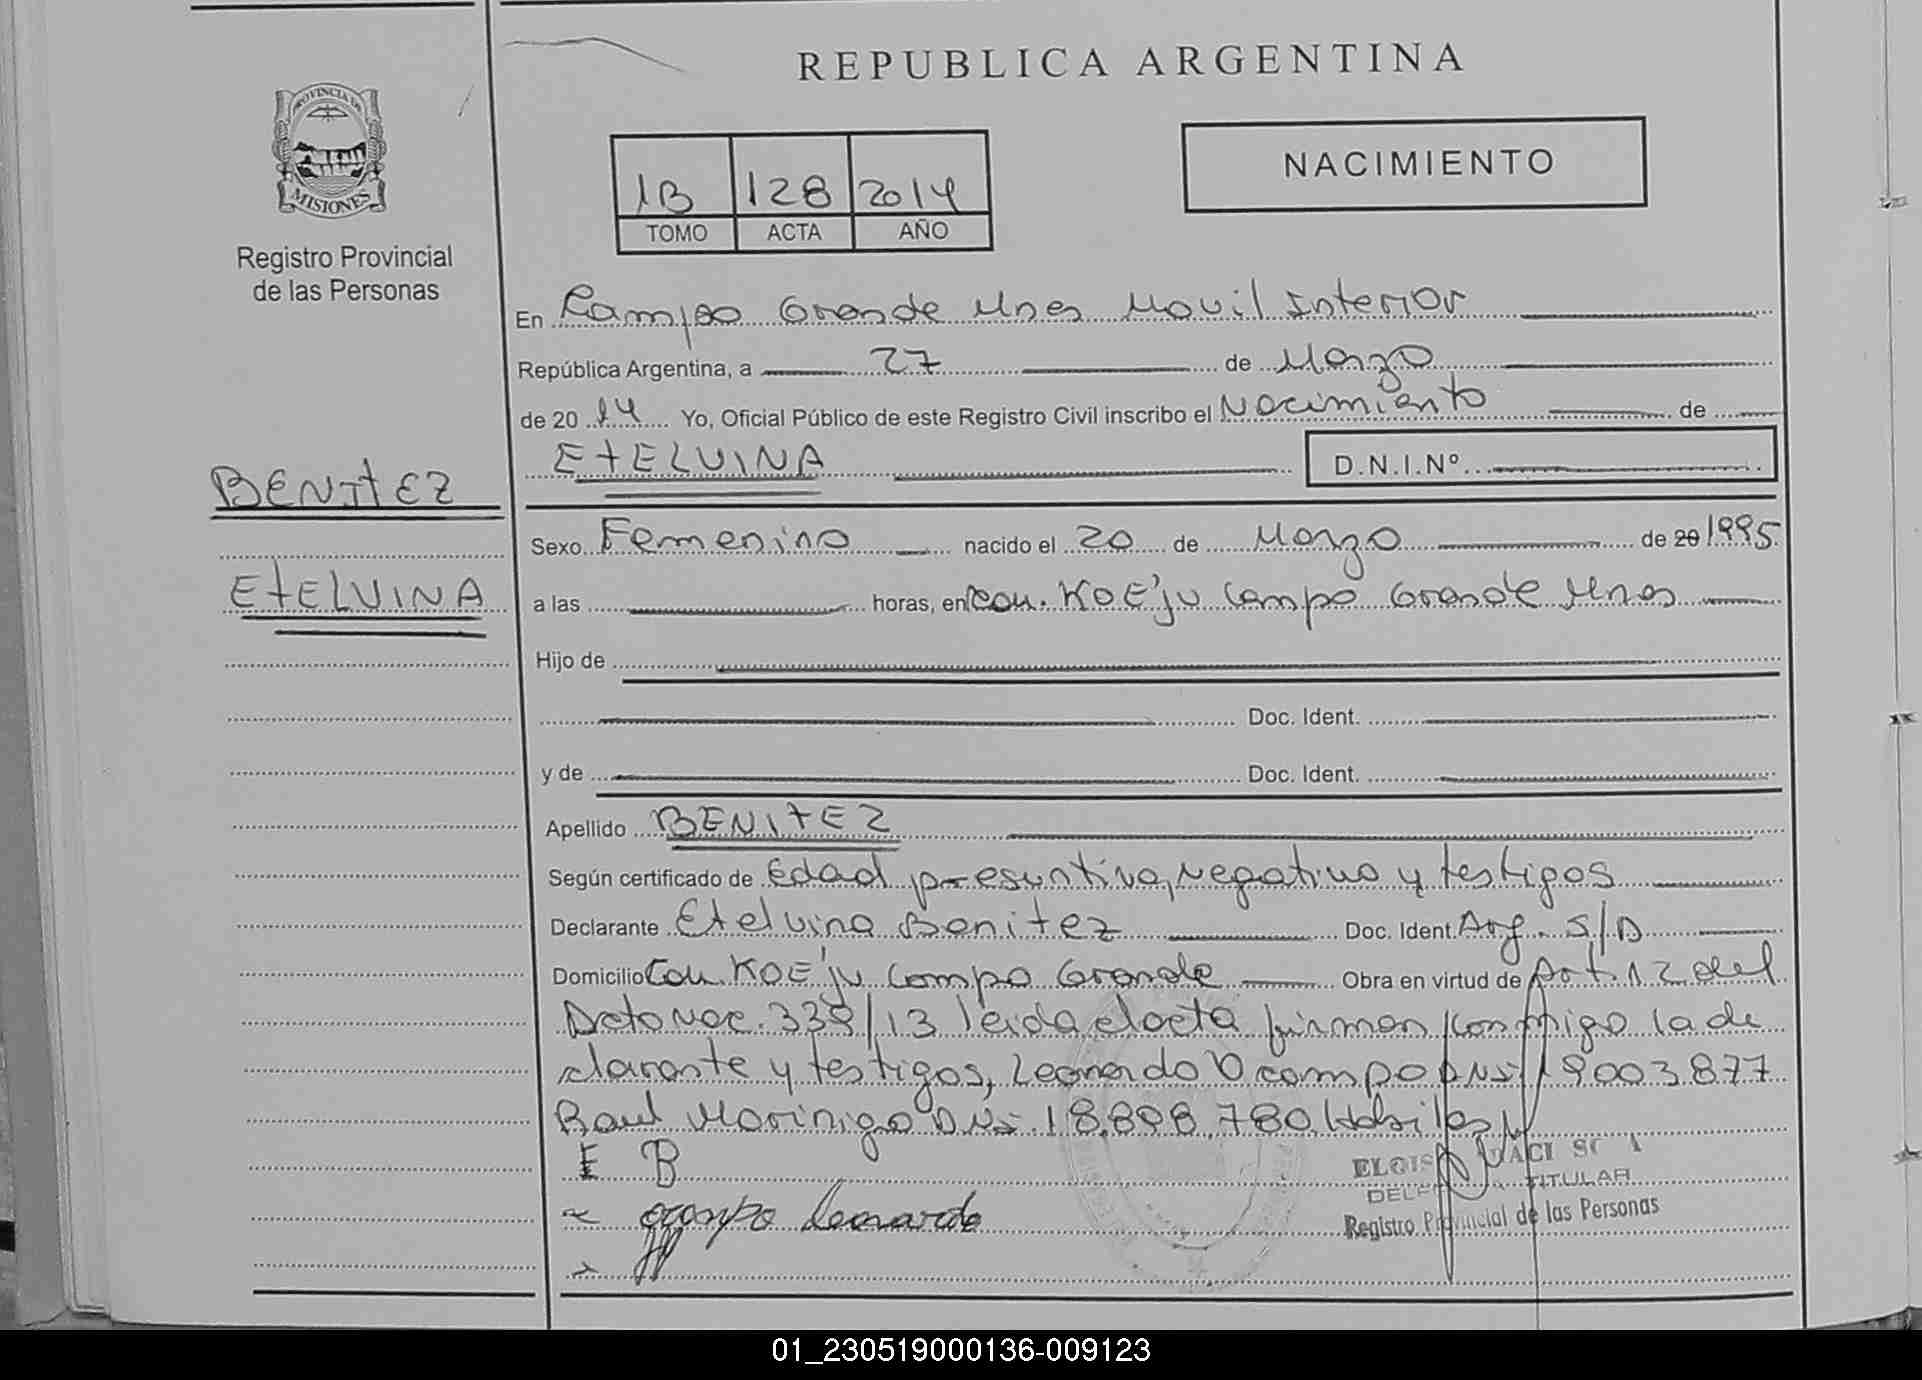 REPUBLICA ARGENTINA
PROVINCIA DE
MISIONES
Registro Provincial
de las Personas
NACIMIENTO
1B 128 2014
TOMO ACTA AÑO
En Campo Grande Mnes Movil Interior
República Argentina, a 27 de Marzo
de 2014 Yo, Oficial Público de este Registro Civil inscribo el Nacimiento de
ETELVINA D.N.I.Nº
BENITEZ
ETELVINA
Sexo Femenino nacido el 20 de Marzo de 20 1995
a las horas, en Com. KOE'ju Campo Grande Mnes
Hijo de
Doc. Ident.
y de Doc. Ident.
Apellido BENITEZ
Según certificado de Edad presuntiva, negativo y testigos
Declarante Etelvina Benitez Doc. Ident. Arg. S/D
Domicilio Com. KOE'ju Campo Grande Obra en virtud de Art. 12 del
Dcto Nac. 339/13 leida el acta firman conmigo la de
clarante y testigos, Leonardo Ocampo DNI 19003.877
Raul Morinigo DNI 18.898.780. Habiles
E B
ocampo Leonardo
TITULAR
Registro Provincial de las Personas
01_230519000136-009123